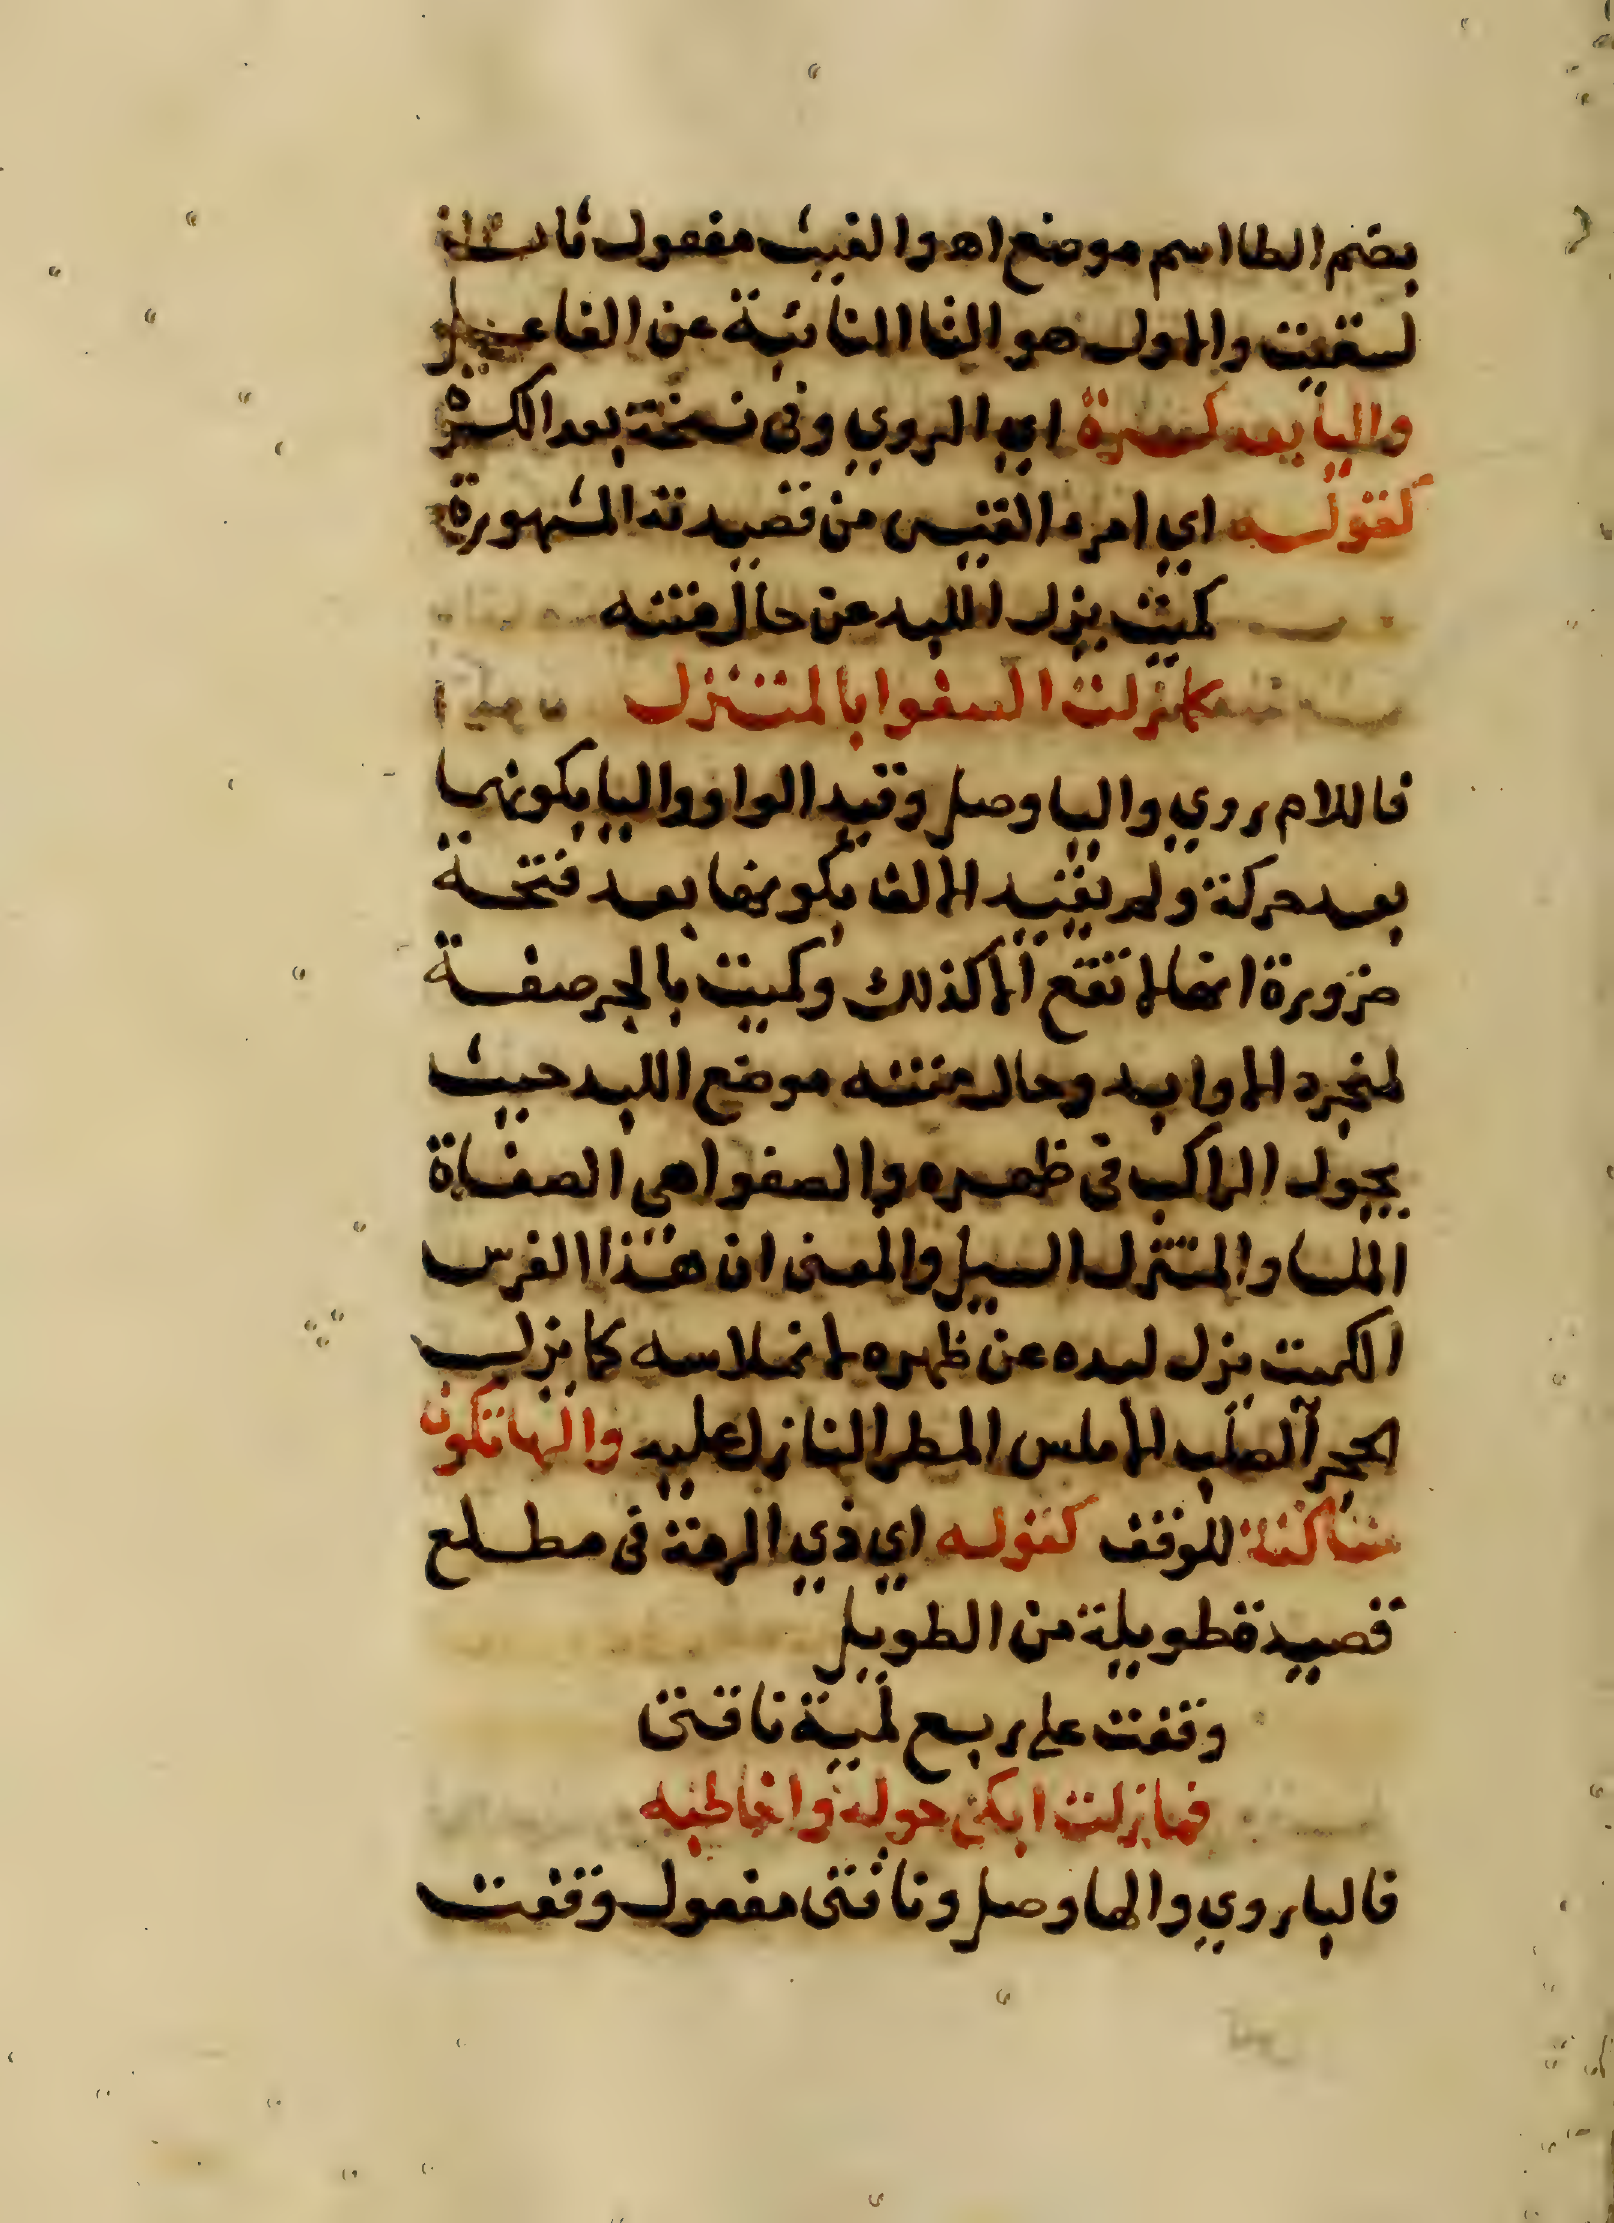 بضم الطا اسم موضع اهـ والغيث مفعول ثان
لسقيت والاول هو التا النائبة عن الفاعل
واليا بعد كسرة اي الروي وفي نسخة بعد الكسرة
كقوله اي امرء القيس من قصيدته المشهورة
كميت يزل اللبد عن حال متنه
كما زلت الصفوا بالمتنزل
فاللام روي واليا وصل وقيد الواو واليا بكونهما
بعد حركة ولم يقيد الالف بكونها بعد فتحة
ضرورة انها لا تقع الا كذلك وكميت بالجر صفة
لمنجرد الاوابد وحال متنه موضع اللبد حيث
يجول الراكب في ظهره والصفوا هي الصفاة
الملسا والمتنزل السيل والمعنى ان هذا الفرس
الكميت يزل لبده عن ظهره لانملاسه كما يزل
الحجر الصلب الاملس المطر النازل عليه والها تكون
ساكنة للوقف كقوله اي ذي الرمة في مطلع
قصيدة طويلة من الطويل
وقفت على ربع لمية ناقتي
فما زلت ابكي حوله واخاطبه
فالبا روي والها وصل وناقتي مفعول وقفت